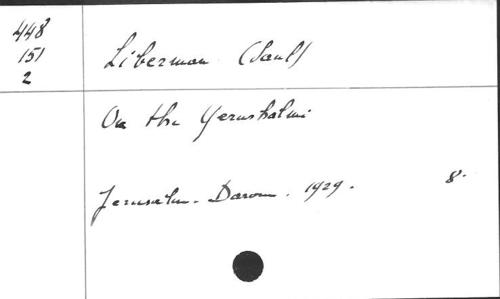 448
151
2
Liberman (Saul)
On the Yerushalmi
Jerusalem. Darom. 1929. 8.